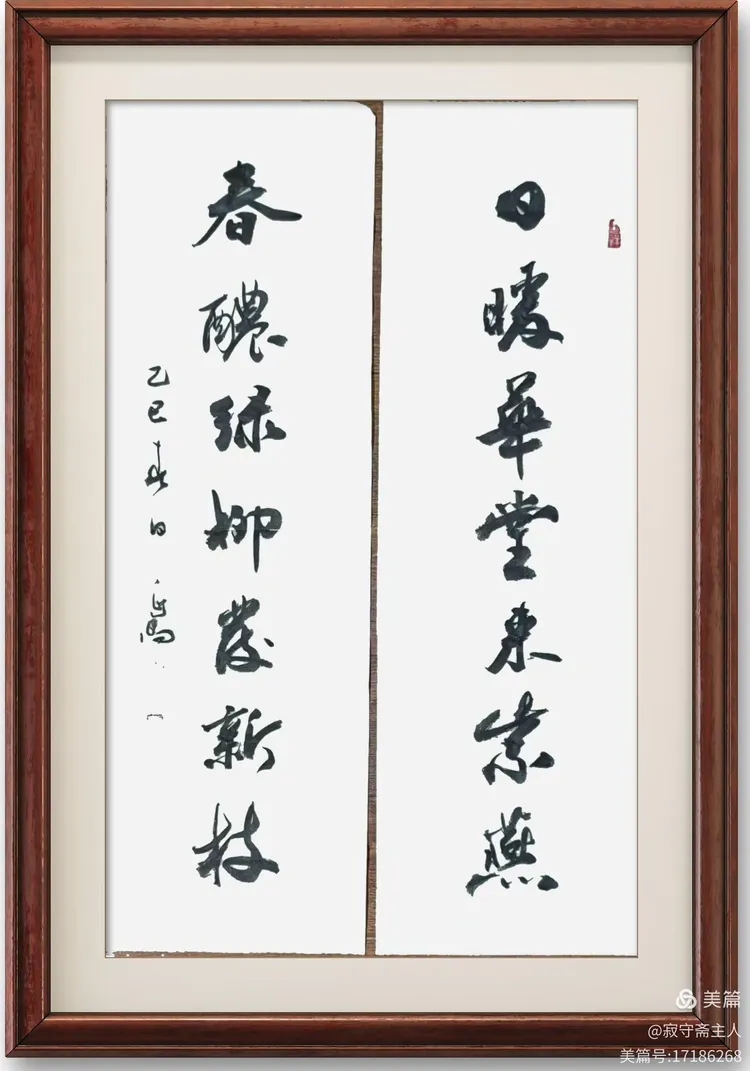 日暖華堂来紫燕
春醲绿柳發新枝
乙巳春日
美篇
@寂守斋主人
美篇号:17186268